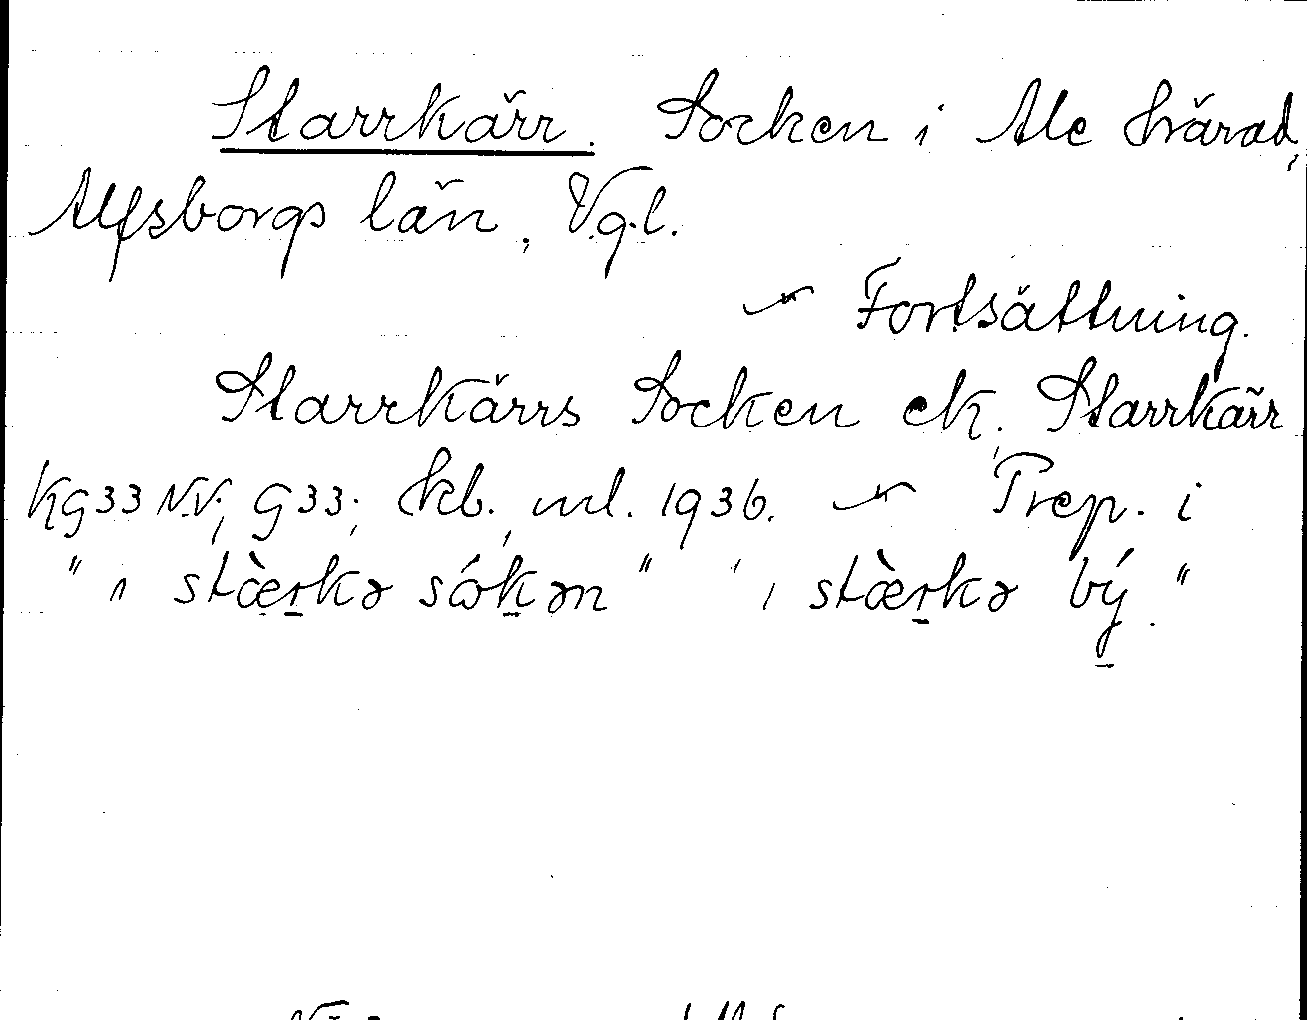 Starrkärr. Socken i Ale härad,
Älfsborgs län, Vg.l.
Fortsättning.
Starrkärrs Socken ek, Starrkärr
KG33 N.V; G33; Skb., ml. 1936. Prep. i
" ı stæ̀rkə sókən " " ı stæ̀rkə bý. "